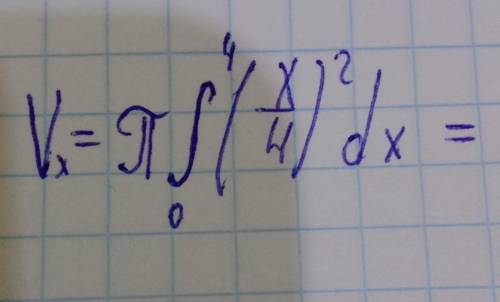 Vₓ = π ∫₀⁴ (x/4)² dx =